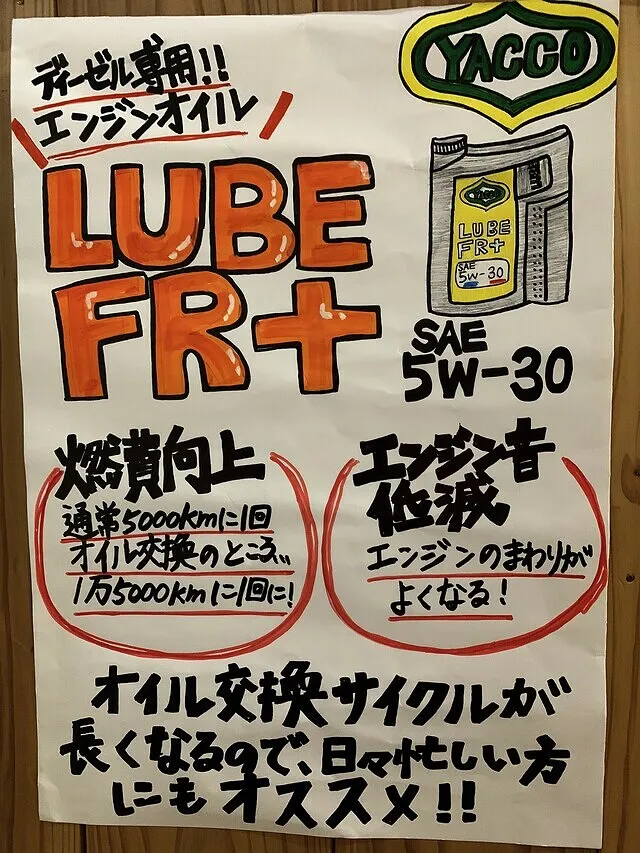 ディーゼル専用!!
エンジンオイル
YACCO
LUBE
FR+
YACCO
LUBE
FR+
SAE
5W-30
SAE
5W-30
燃費向上
通常5000kmに1回
オイル交換のところ、、
1万5000kmに1回に!
エンジン音
低減
エンジンのまわりが
よくなる!
オイル交換サイクルが
長くなるので、日々忙しい方
にもオススメ!!